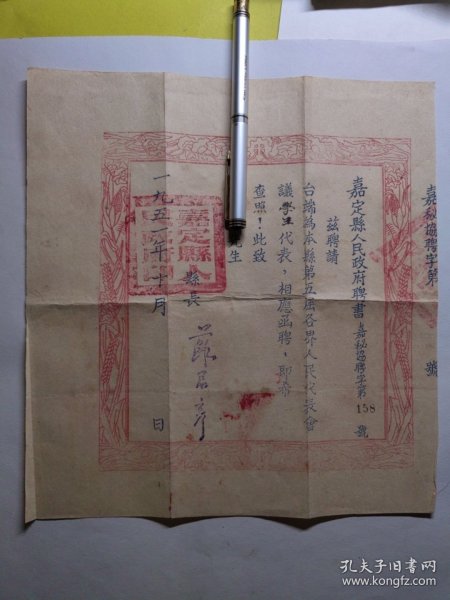 嘉秘協聘字第 號
嘉定縣人民政府聘書 嘉秘協聘字第158號
茲聘請
台端為本縣第五屆各界人民代表會
議學生代表，相應函聘，即希
查照！此致
生
縣長
一九五一年十月 日
孔夫子旧书网
www.kongfz.com